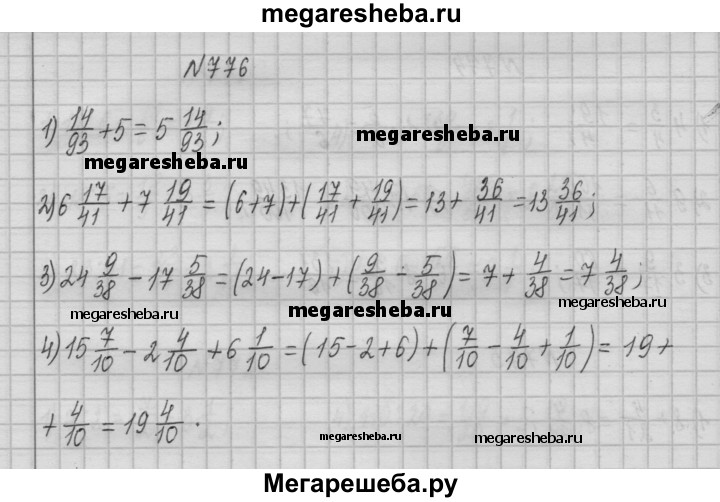 megaresheba.ru
N776
1) 14/93 + 5 = 5 14/93;
megaresheba.ru
megaresheba.ru
2) 6 17/41 + 7 19/41 = (6+7)+(17/41 + 19/41) = 13 + 36/41 = 13 36/41;
3) 24 9/38 - 17 5/38 = (24-17) + (9/38 - 5/38) = 7 + 4/38 = 7 4/38;
megaresheba.ru
megaresheba.ru
megaresheba.ru
4) 15 7/10 - 2 4/10 + 6 1/10 = (15-2+6) + (7/10 - 4/10 + 1/10) = 19 +
+ 4/10 = 19 4/10.
megaresheba.ru
megaresheba.ru
Мегарешеба.ру